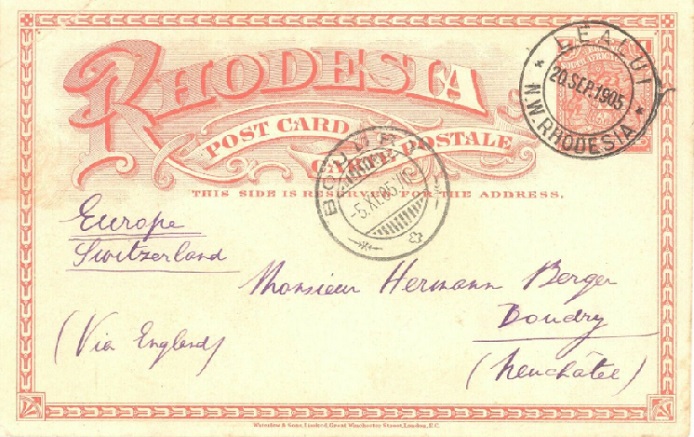 RHODESIA
POST CARD
CARTE POSTALE
THIS SIDE IS RESERVED FOR THE ADDRESS.
LEALUI
20.SEP.1905
N.W.RHODESIA
BOUDRY
-5.XI.05
Europe
Switzerland
Monsieur Hermann Berger
Boudry
(Via England)
(Neuchâtel)
Waterlow & Sons, Limited, Great Winchester Street, London, E.C.